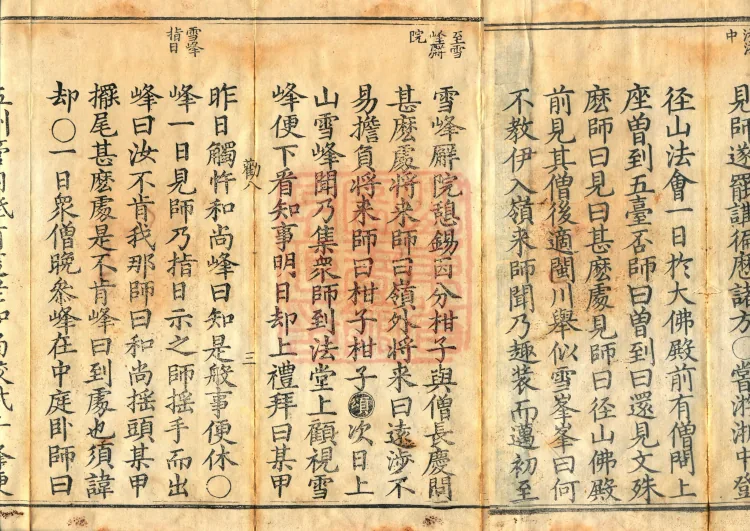 中
見師遂罷講
諸方〇嘗游浙中登
径山法會一日於大佛殿前有僧問上
座曾到五臺否師曰曾到曰還見文殊
麽師曰見曰甚麽處見師曰径山佛殿
前見其僧後適閩川舉似雪峯峯曰何
不教伊入嶺来師聞乃趣装而邁初至
至雪峰廨院
雪峰廨院憩錫因分柑子與僧長慶問
甚麽處將来師曰嶺外將来曰遠涉不
易擔負將来師曰柑子柑子須次日上
山雪峰聞乃集衆師到法堂上顧視雪
峰便下看知事明日却上禮拜曰某甲
勘八
三
昨日觸忤和尚峰曰知是般事便休〇
雪峰指日
峰一日見師乃指日示之師揺手而出
峰曰汝不肯我那師曰和尚揺頭某甲
擺尾甚麽處是不肯峰曰到處也須諱
却〇一日衆僧晩參峰在中庭卧師曰